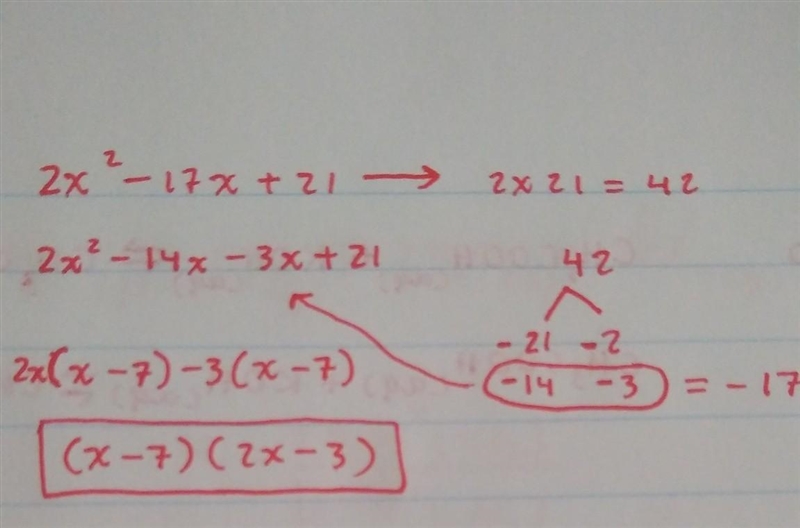 2x² - 17x + 21 → 2 x 21 = 42
2x² - 14x - 3x + 21
42
-21 -2
2x(x - 7) - 3(x - 7)
-14 -3 = -17
(x - 7)(2x - 3)